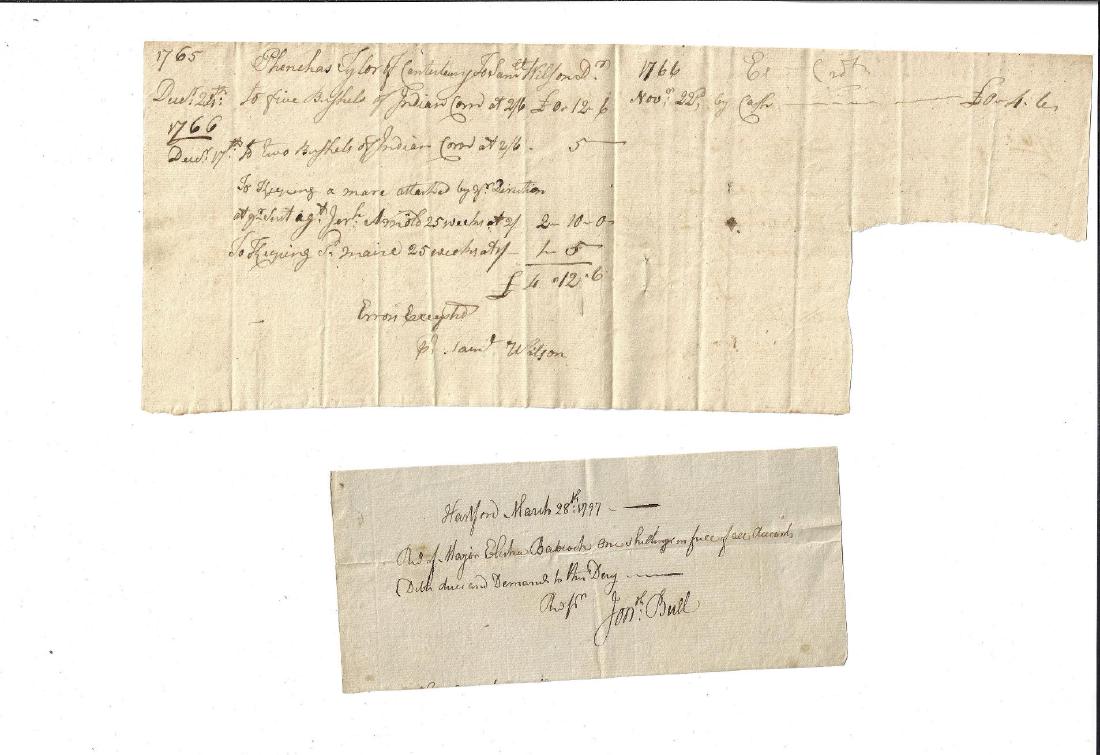 1765 Phenehas Tylor of Canterbury To Samll Wilson Dr
Decr 24th: to five Bushels of Indian Corn at 2/6 £0-12-6
1766
Decr 17th to two Bushels of Indian Corn at 2/6 - 5 —
To Keeping a mare attached by yr Direction
at yr Suit agt Jerh Arnold 25 weeks at 2/ 2-10-0
To Keeping Sd maire 25 weeks at 1/ - 1-5
£4-12-6
Errors Excepted
pr Saml Wilson
1766 Cr — Credt
Novr 22d, by Cash £0-4-6
Hartford March 28th: 1797 —
Recd of Major Elisha Babcock One shilling in full of all Accounts
Debts dues and Demands to this Day —
Recd pr Jonth: Bull